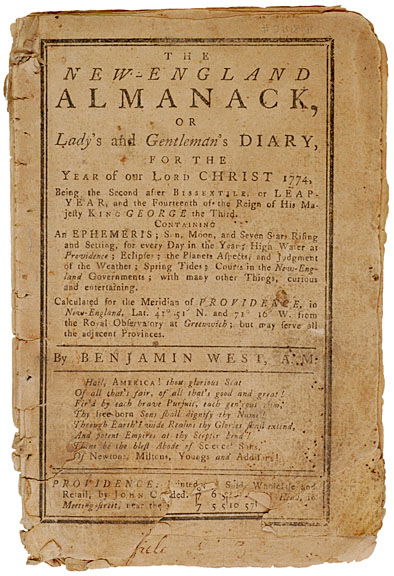 THE
NEW-ENGLAND
ALMANACK,
OR
Lady's and Gentleman's DIARY,
FOR THE
YEAR of our LORD CHRIST 1774,
Being the Second after BISSEXTILE, or LEAP-
YEAR, and the Fourteenth of the Reign of His Ma-
jesty KING GEORGE the Third.
CONTAINING
An EPHEMERIS; Sun, Moon, and Seven Stars Rising
and Setting, for every Day in the Year; High Water at
Providence; Eclipses; the Planets Aspects, and Judgment
of the Weather; Spring Tides; Courts in the New-Eng-
land Governments; with many other Things, curious
and entertaining.
Calculated for the Meridian of PROVIDENCE, in
New-England, Lat. 41° 51' N. and 71° 16' W. from
the Royal Observatory at Greenwich; but may serve all
the adjacent Provinces.
By BENJAMIN WEST, A.M.
Hail, AMERICA! thou glorious Seat
Of all that's fair, of all that's good and great!
Fir'd by each brave Pursuit, each gen'rous
Thy free-born Sons shall dignify thy Name!
Through Earth's wide Realms thy Glories shall extend,
And potent Empires at thy Scepter bend!
Thine be the blest Abode of Sons,
Of Newtons, Miltons, Youngs and Addisons!
PROVIDENCE: Printed Sold, Wholesale and
Retail, by JOHN Head, in
Meeting-street, near the